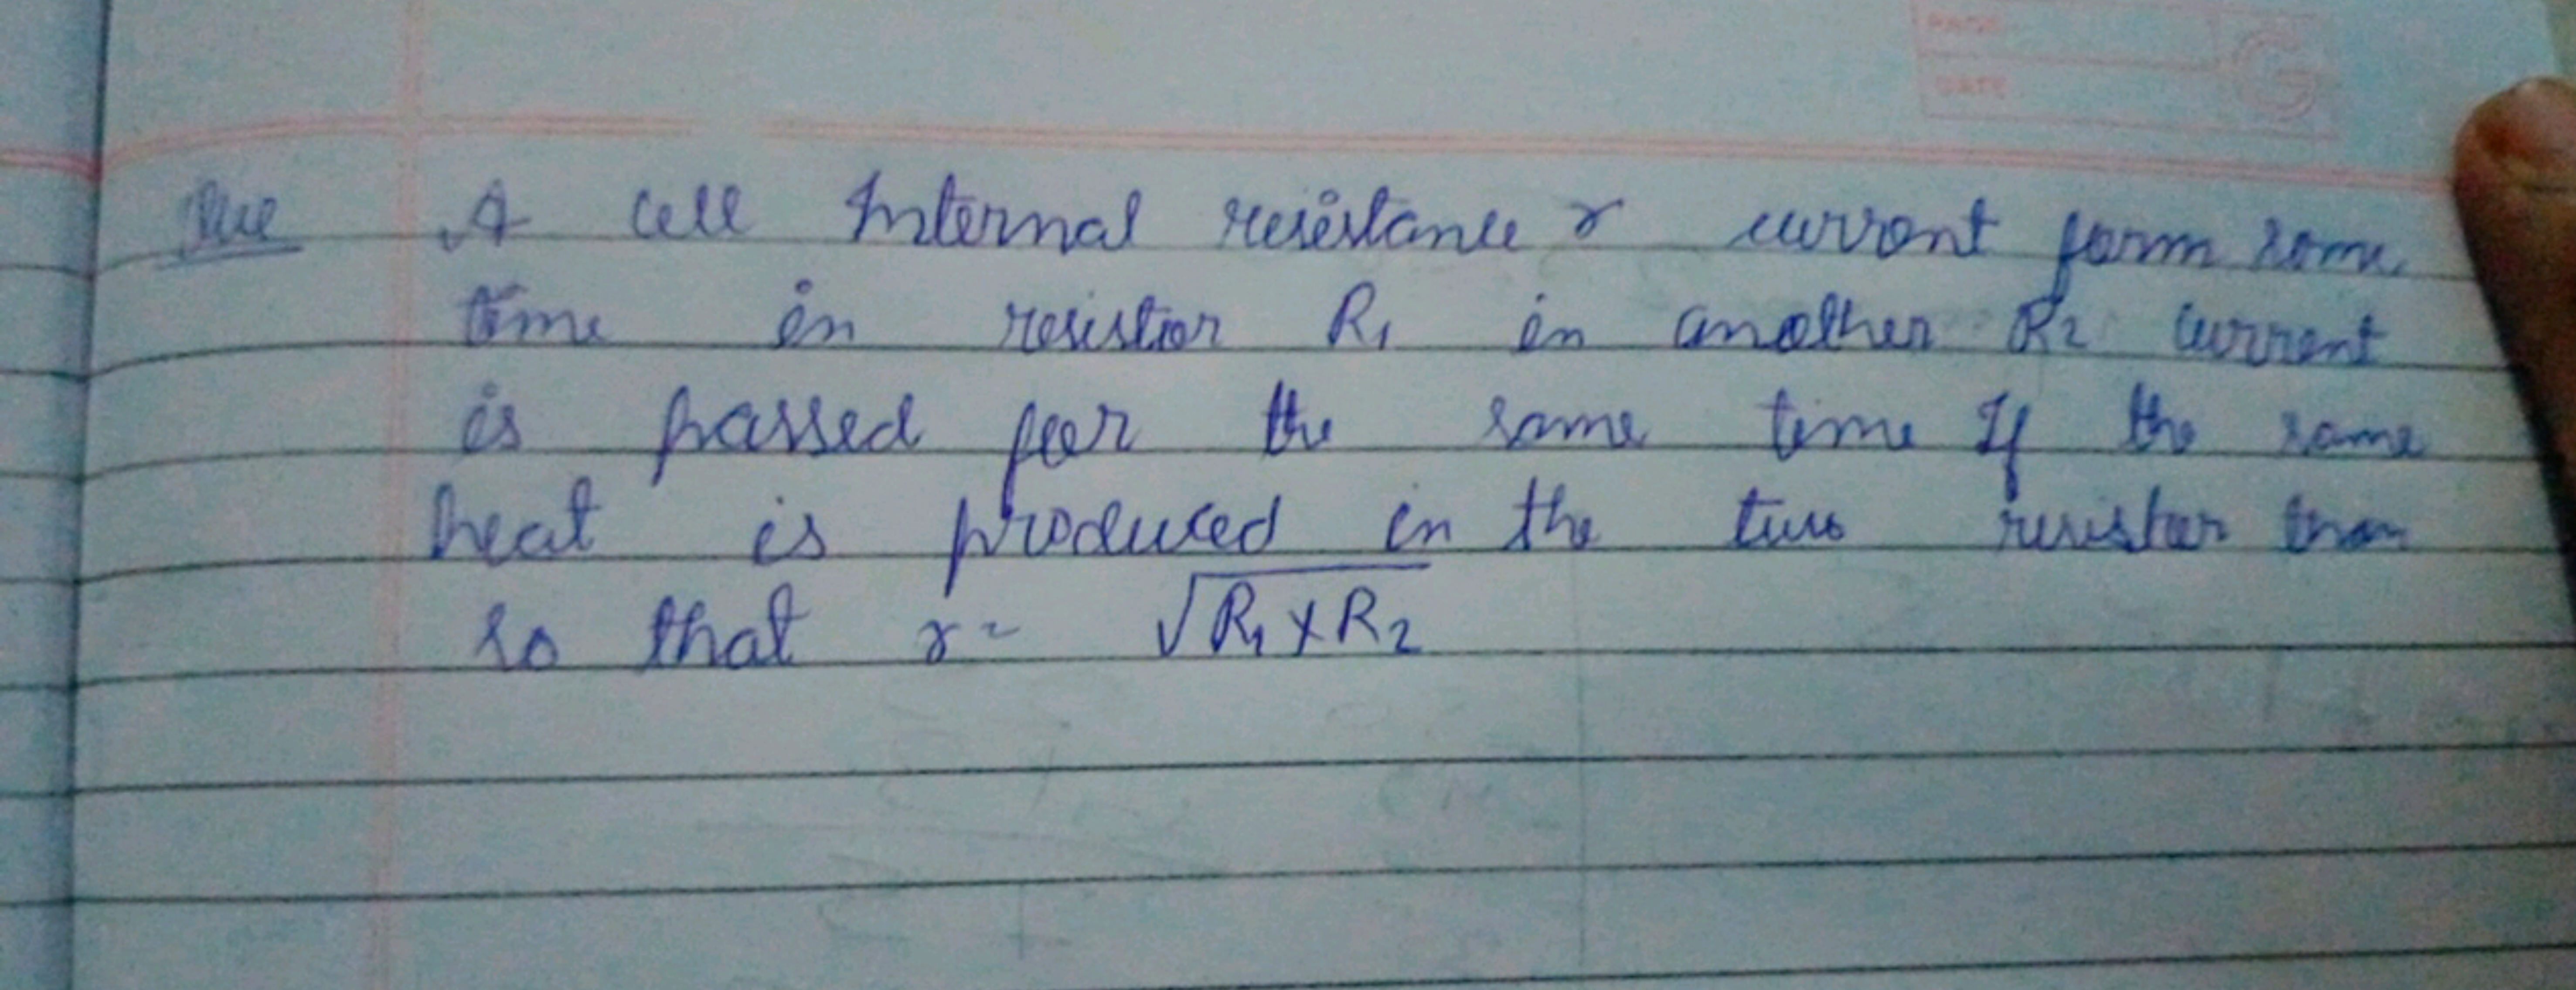 PAGE
DATE
G
Que A cell Internal resistance r current form some
time in resistior R₁ in another R2 current
is passed foor the same time If the same
heat is produced in the two resister than
so that r = √R₁ x R₂